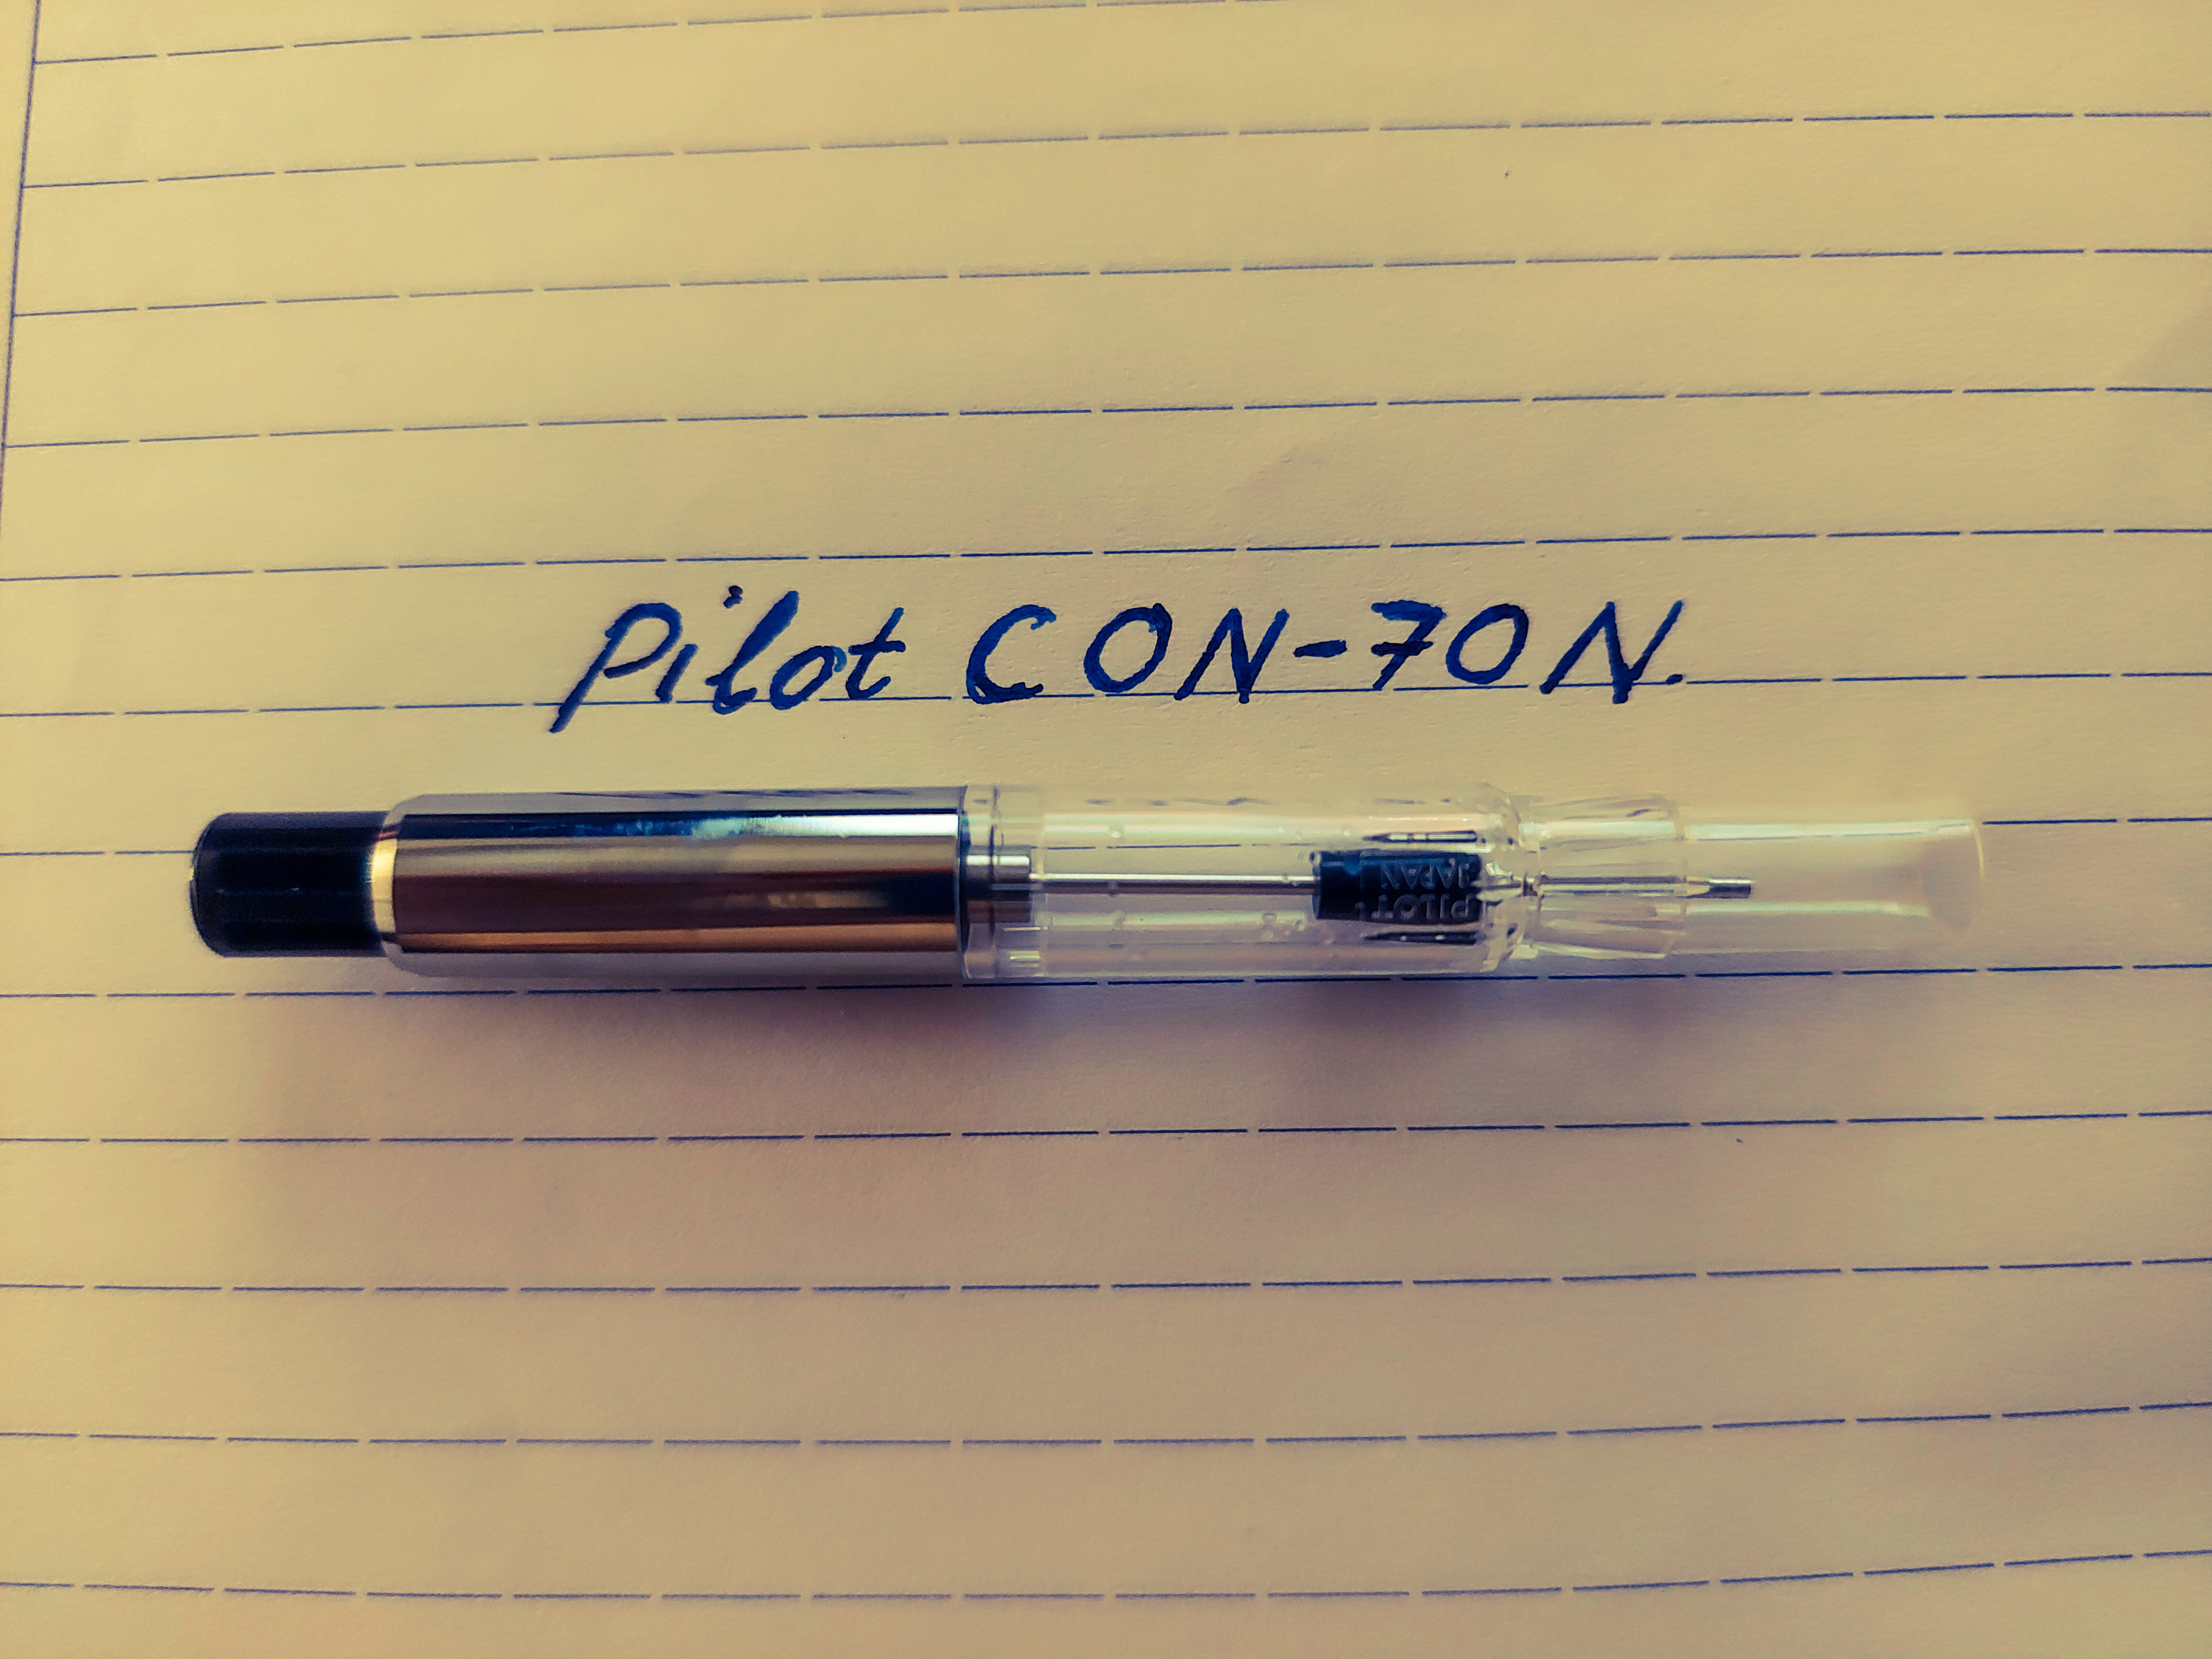 Pilot CON-70N.
PILOT
JAPAN